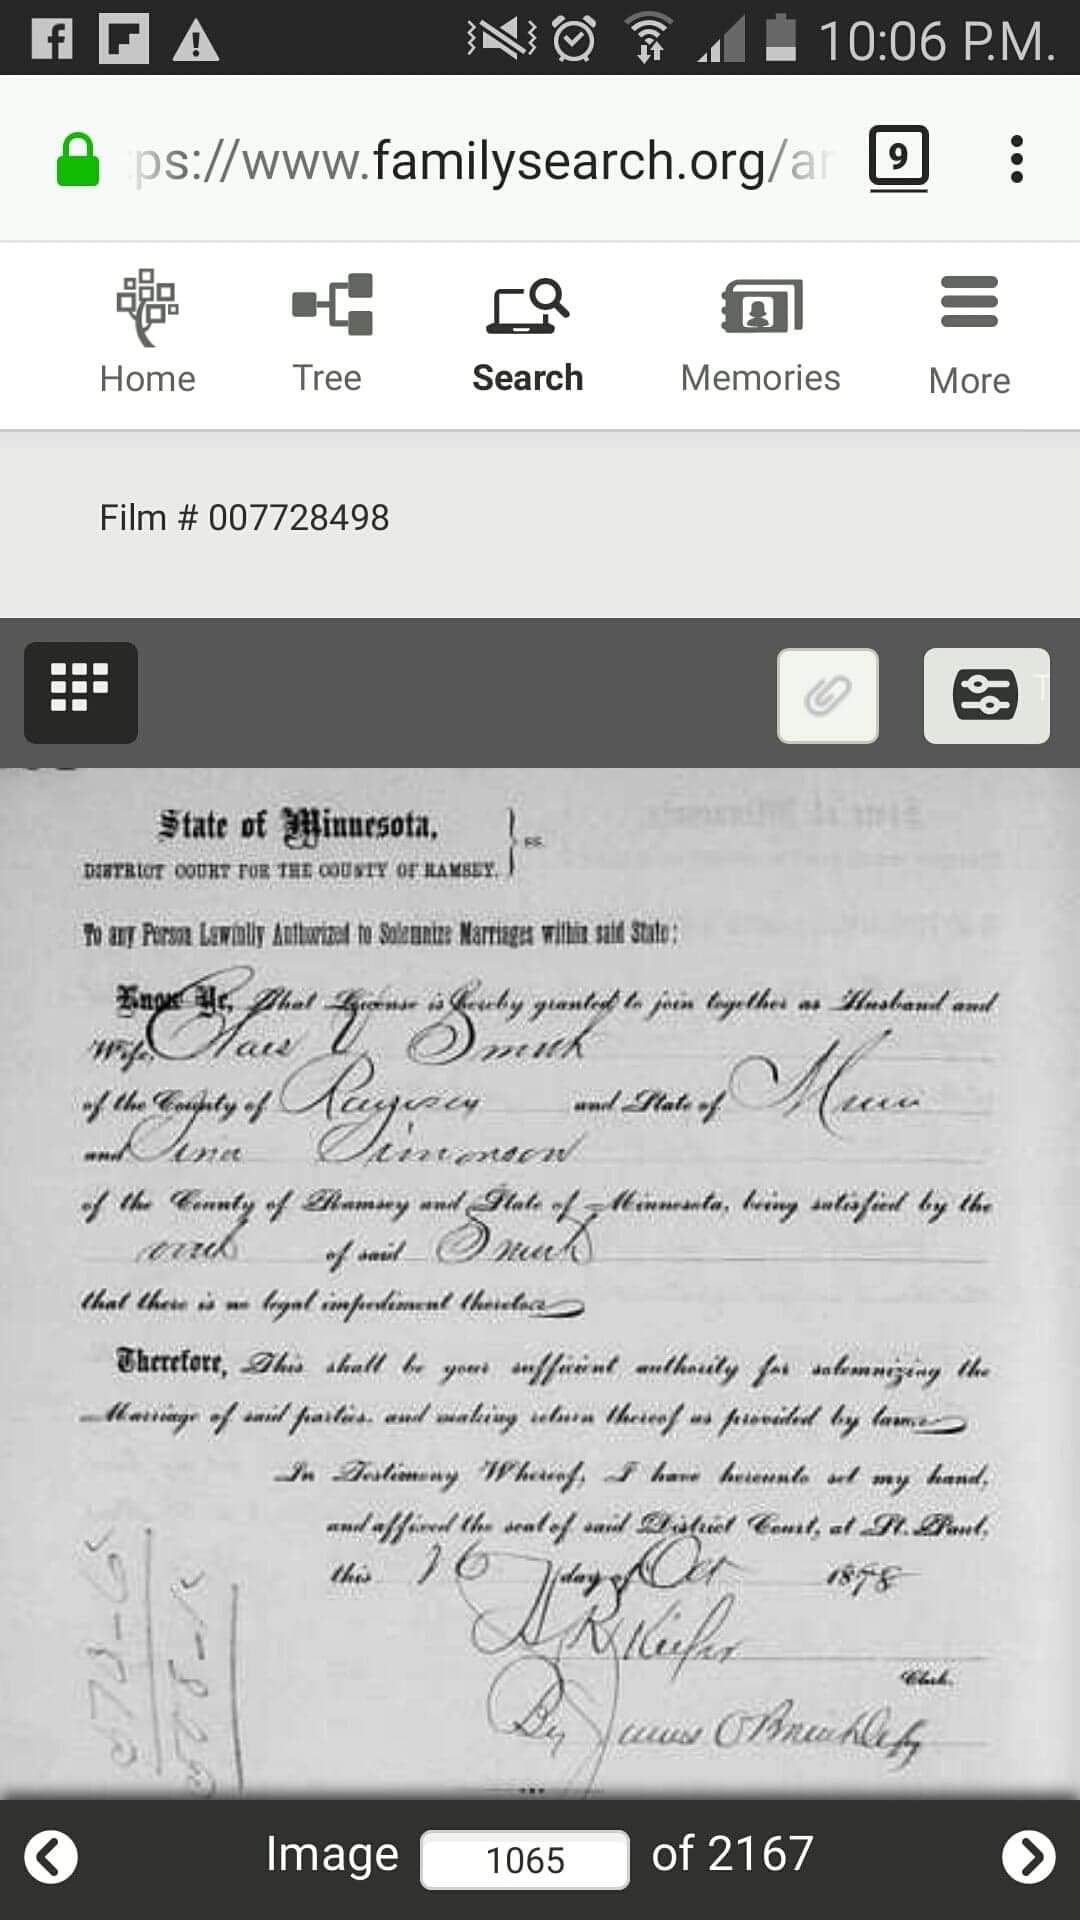 10:06 P.M.
ps://www.familysearch.org/ar
9
Home Tree Search Memories More
Film # 007728498
State of Minnesota,
DISTRICT COURT FOR THE COUNTY OF RAMSEY. } ss.
To any Person Lawfully Authorized to Solemnize Marriages within said State:
Know Ye, That License is hereby granted to join together as Husband and
Wife
of the County of Ramsey and State of Minn
and Simonson
of the County of Ramsey and State of Minnesota, being satisfied by the
oath of said
that there is no legal impediment thereto
Therefore, This shall be your sufficient authority for solemnizing the
Marriage of said parties, and making return thereof as provided by law.
In Testimony Whereof, I have hereunto set my hand,
and affixed the seal of said District Court, at St. Paul,
this 16 day of Oct 1878
A R Kiefer
Clerk.
By James
Image 1065 of 2167